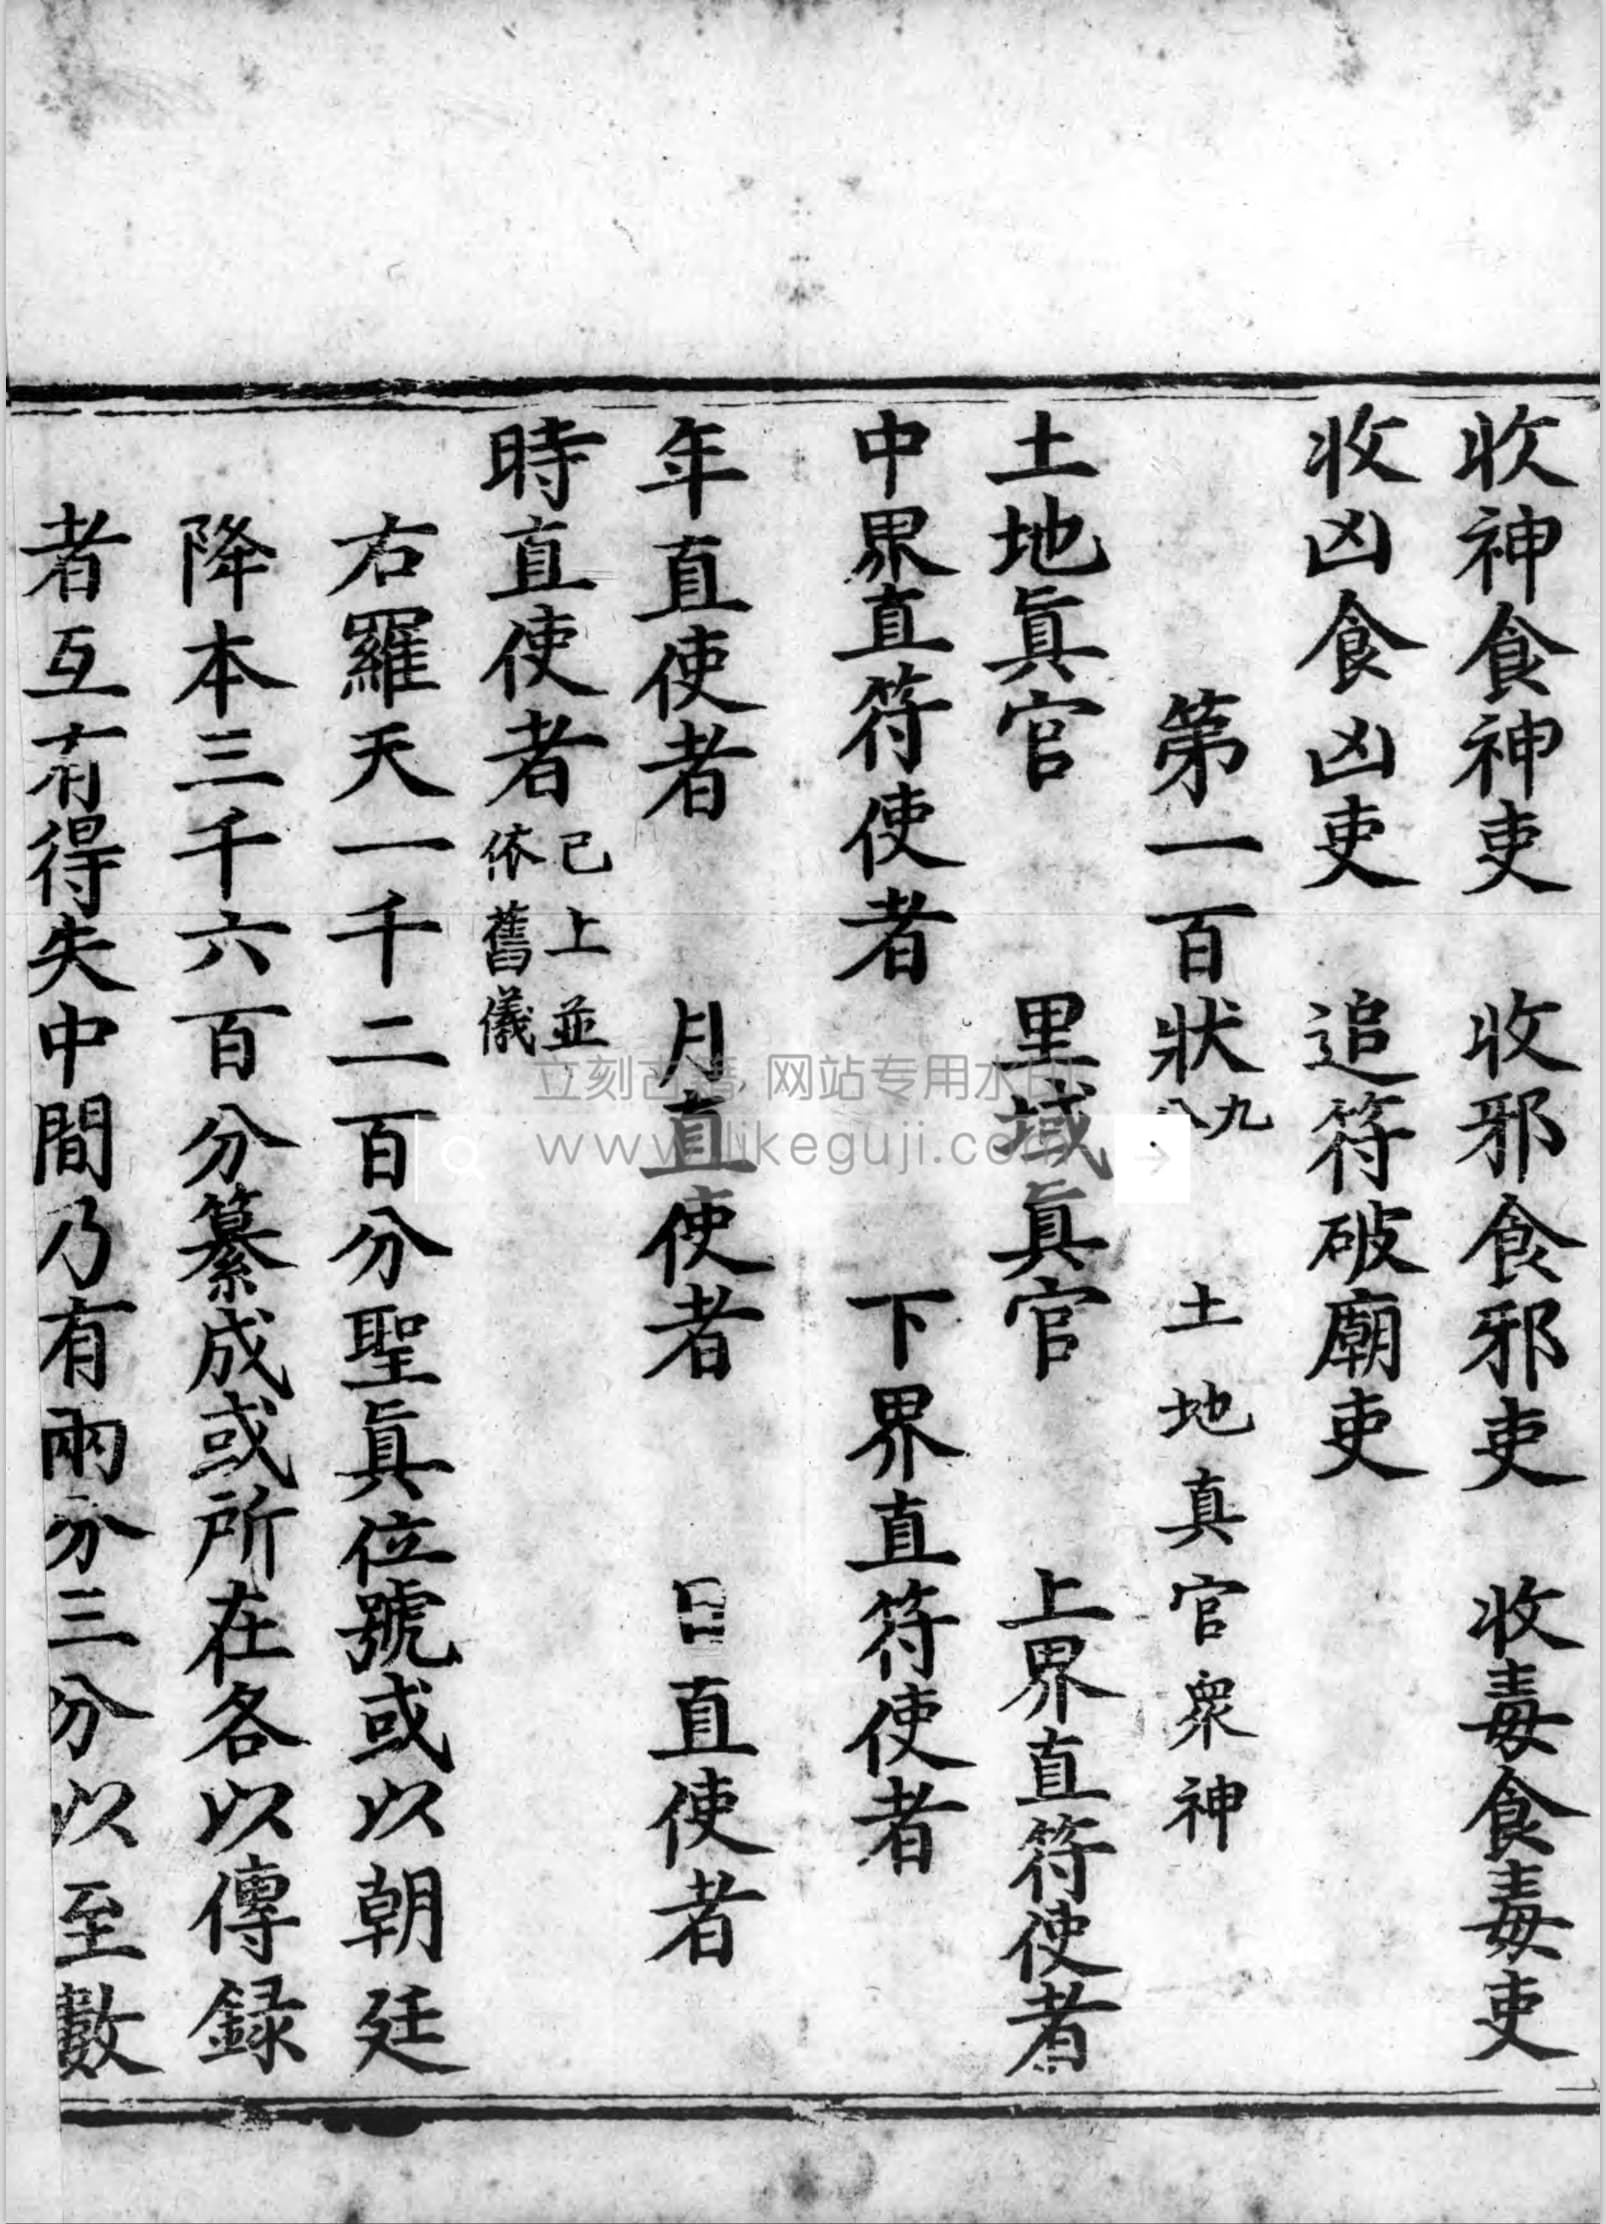 收神食神吏　收邪食邪吏　收毒食毒吏
收凶食凶吏　追符破廟吏
第一百狀八九　土地真官衆神
土地眞官　里域眞官　上界直符使者
中界直符使者　下界直符使者
年直使者　月直使者　日直使者
時直使者已上並依舊儀
右羅天一千二百分聖眞位號或以朝廷
降本三千六百分纂成或所在各以傳録
者互有得失中間乃有兩分三分以至數
立刻古籍 网站专用水印
www.likeguji.com